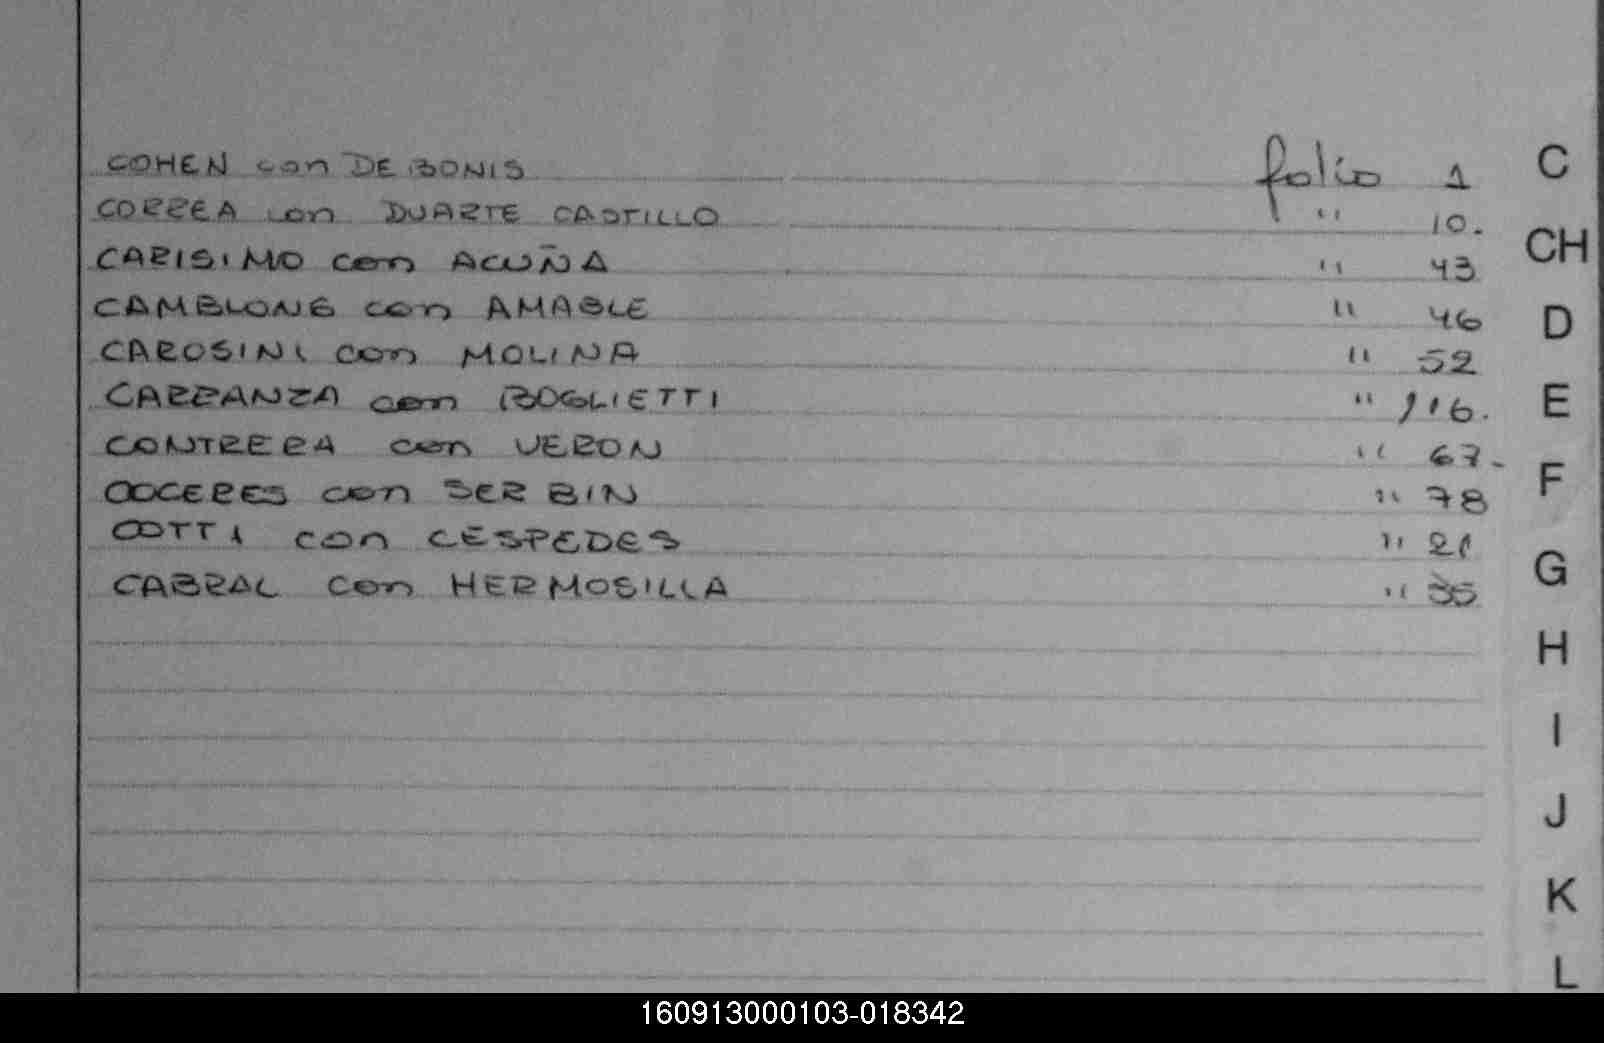 COHEN con DE BONIS folio 1 C
CORREA con DUARTE CASTILLO " 10.
CARISIMO con ACUÑA " 43 CH
CAMBLONG con AMABLE " 46 D
CAROSINI con MOLINA " 52
CARRANZA con BOGLIETTI " 116. E
CONTRERA con VERON " 67.-
COCERES con SERBIN " 78 F
COTTI con CÉSPEDES " 21
CABRAL con HERMOSILLA " 35 G
H
I
J
K
L
160913000103-018342